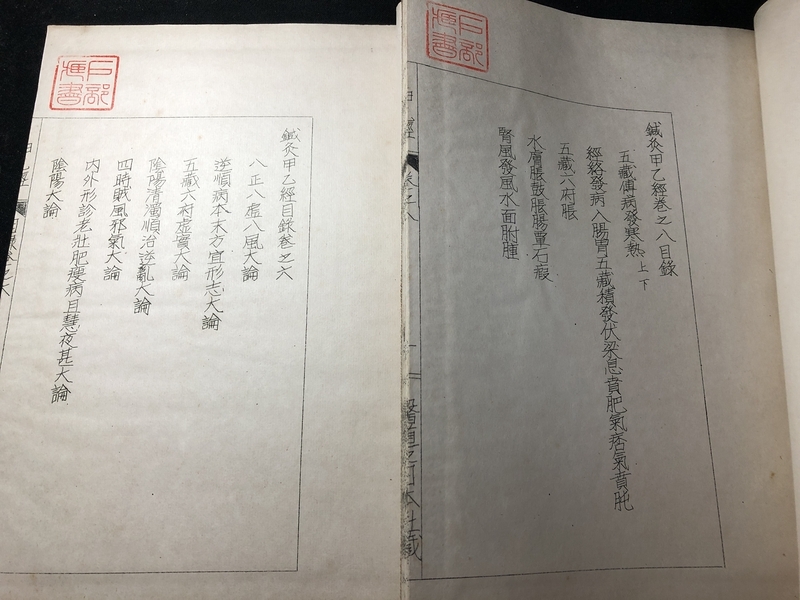 鍼灸甲乙經卷之八目錄
五藏傳病發寒熱上下
經絡發病入腸胃五藏積發伏梁息賁肥氣痞氣賁肫
五藏六府脹
水膚脹鼓脹腸覃石瘕
腎風發風水面胕腫
鍼灸甲乙經目錄卷之六
八正八虛八風大論
逆順病本末方宜形志大論
五藏六府虛實大論
陰陽清濁順治逆亂大論
四時賊風邪氣大論
内外形診老壯肥瘦病旦慧夜甚大論
陰陽大論